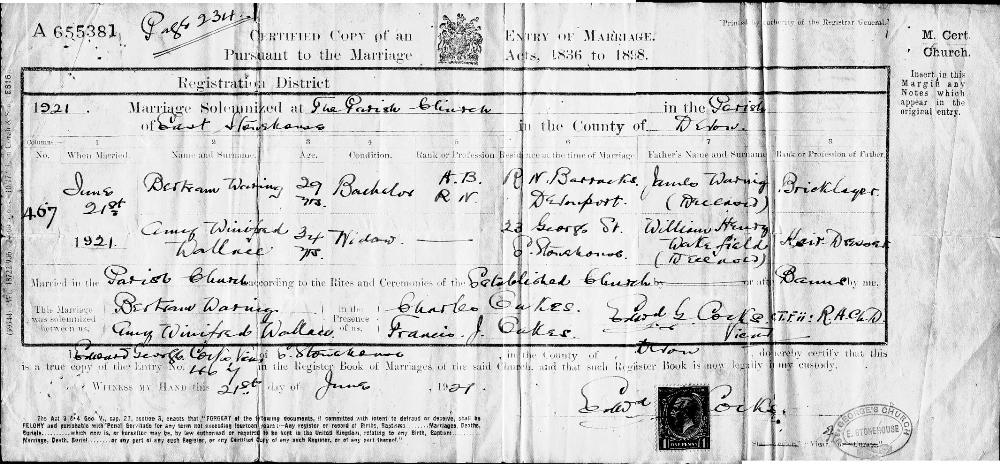 A 655381
Page 234.
CERTIFIED COPY of an ENTRY OF MARRIAGE.
Pursuant to the Marriage Acts, 1836 to 1898.
"Printed by authority of the Registrar General."
M. Cert
Church.
Insert in this
Margin any
Notes which
appear in the
original entry.
Registration District
1921. Marriage Solemnized at The Parish Church in the Parish
of East Stonehouse in the County of Devon.
Columns:— 1 2 3 4 5 6 7 8
No. When Married. Name and Surname. Age. Condition. Rank or Profession Residence at the time of Marriage Father's Name and Surname Rank or Profession of Father
467 June 21st 1921.
Bertram Waring 29 yrs. Bachelor A.B. R N R N. Barracks, Devonport. James Waring (Deceased) Bricklayer.
Amy Winifred Wallace 34 yrs. Widow. — 23 George St. E. Stonehouse. William Henry Wakefield (Deceased) Hair Dresser
Married in the Parish Church according to the Rites and Ceremonies of the Established Church by — or after Banns by me,
This Marriage was solemnized between us, Bertram Waring. Amy Winifred Wallace in the Presence of us, Charles Oakes. Francis J. Oakes. Edwd G Cocks R.A.Ch.D. Vicar
I, Edward George Cocks Vicar E. Stonehouse, in the County of Devon, do hereby certify that this
is a true copy of the Entry No. 467 in the Register Book of Marriages of the said Church, and that such Register Book is now legally in my custody.
WITNESS MY HAND this 21st day of June 1921
Edwd Cocks.
ONE PENNY
The Act 3 & 4 Geo V., cap. 27, section 3, enacts that "FORGERY of the following documents, if committed with intent to defraud or deceive, shall be
FELONY and punishable with Penal Servitude for any term not exceeding fourteen years:—Any register or record of Births, Baptisms ........ Marriages, Deaths,
Burials........ which now is, or hereafter may be, by law authorised or required to be kept in the United Kingdom, relating to any Birth, Baptism
Marriage, Death, Burial........ or any part of any such Register, or any Certified Copy of any such Register, or of any part thereof."
ST GEORGE'S CHURCH
E. STONEHOUSE